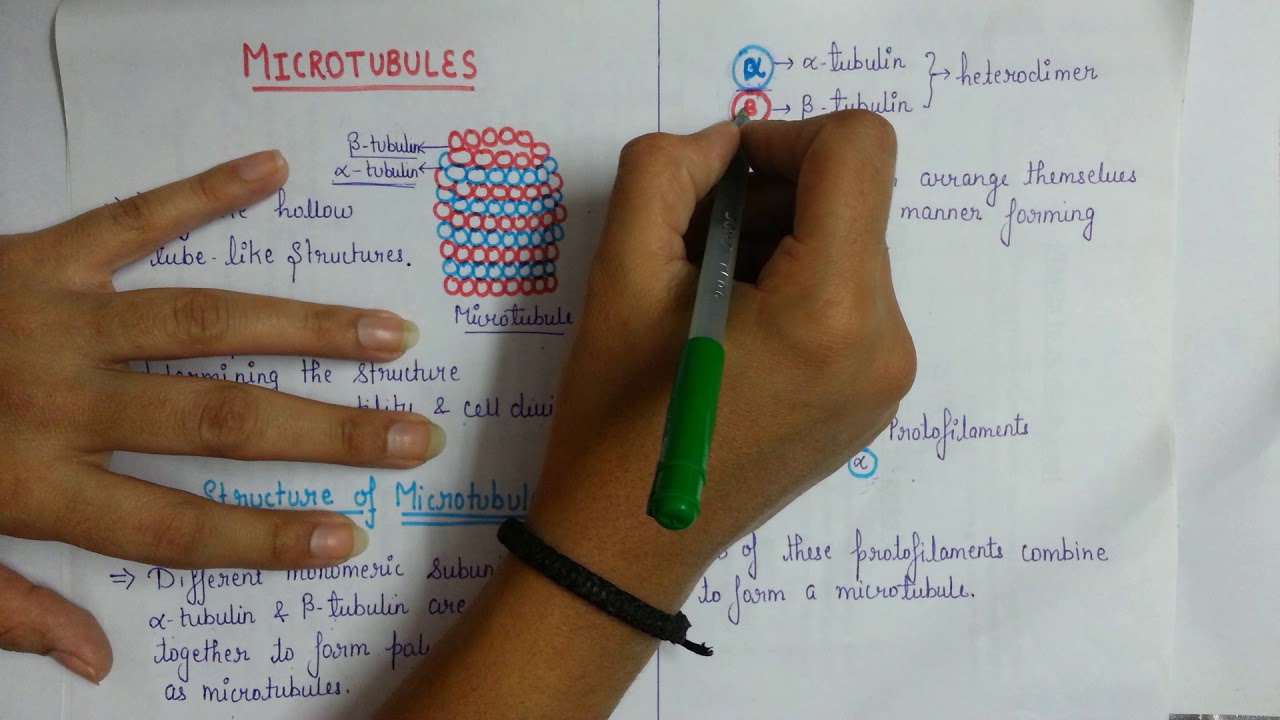 MICROTUBULES
β-tubulin
α-tubulin
hollow
tube-like structures.
Microtubule
determining the structure
& cell divi
Structure of Microtubul
⇒ Different monomeric subuni
α-tubulin & β-tubulin are
together to form
as microtubules.
α → α-tubulin
β → β-tubulin
→ heterodimer
arrange themselves
manner forming
Protofilaments
α
of these protofilaments combine
to form a microtubule.